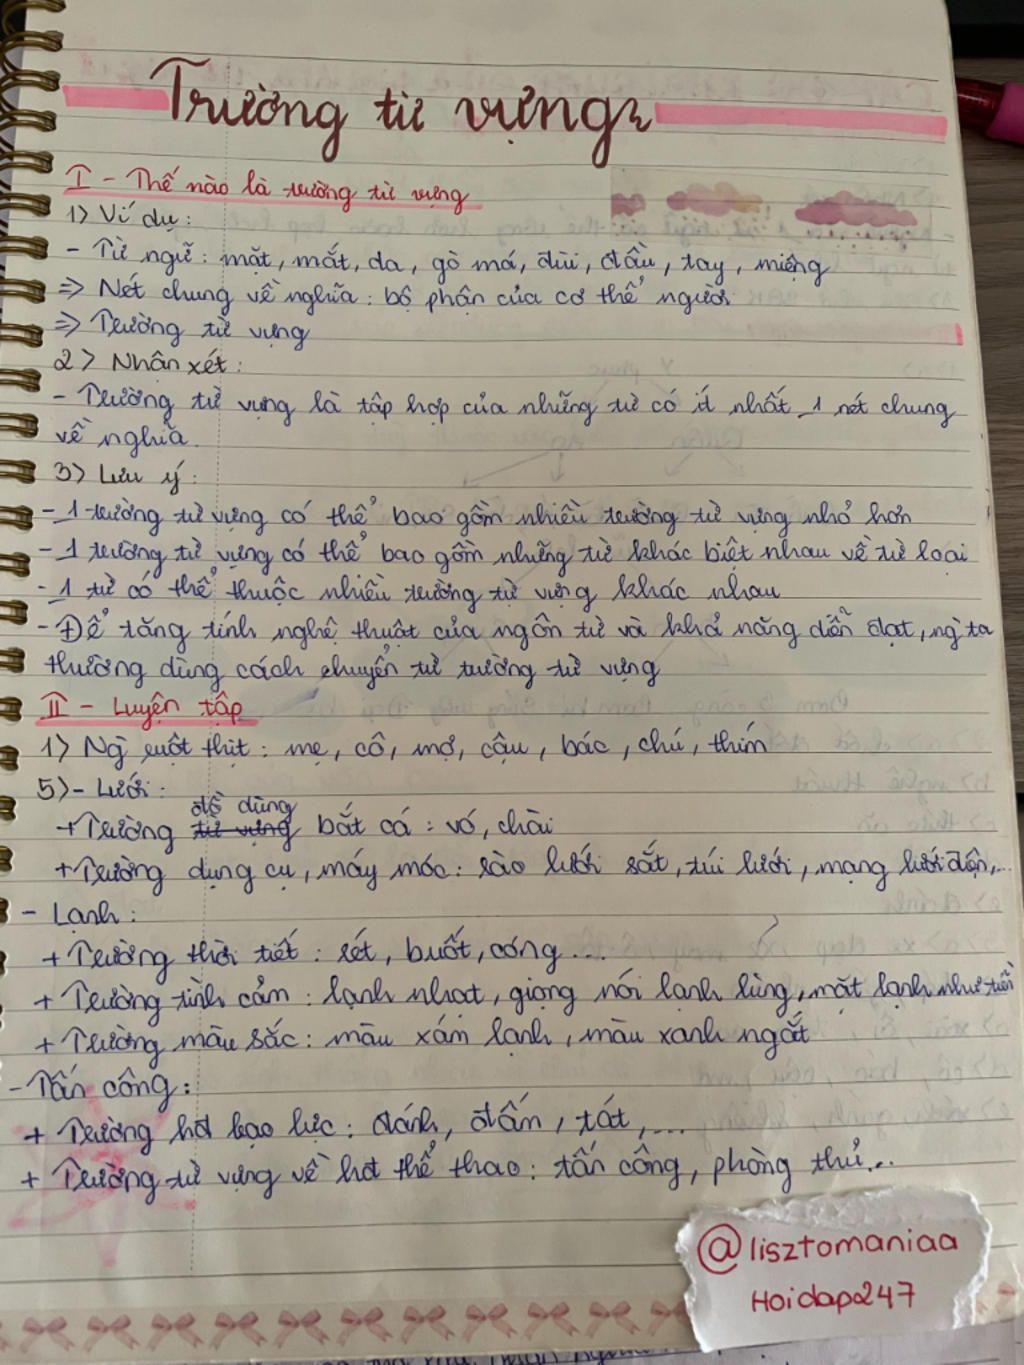 Trường từ vựng
I - Thế nào là trường từ vựng
1> Ví dụ:
- Từ ngữ: mặt, mắt, da, gò má, đùi, đầu, tay, miệng
=> Nét chung về nghĩa: bộ phận của cơ thể người
=> Trường từ vựng
2> Nhận xét:
- Trường từ vựng là tập hợp của những từ có ít nhất 1 nét chung
về nghĩa.
3> Lưu ý:
- 1 trường từ vựng có thể bao gồm nhiều trường từ vựng nhỏ hơn
- 1 trường từ vựng có thể bao gồm những từ khác biệt nhau về từ loại
- 1 từ có thể thuộc nhiều trường từ vựng khác nhau
- Để tăng tính nghệ thuật của ngôn từ và khả năng diễn đạt, ng ta
thường dùng cách chuyển từ trường từ vựng
II - Luyện tập
1> Ng ruột thịt: mẹ, cô, mợ, cậu, bác, chú, thím
5> - Lưới:
đồ dùng
+ Trường từ vựng bắt cá: vó, chài
+ Trường dụng cụ, máy móc: rào lưới sắt, túi lưới, mạng lưới điện,...
- Lạnh:
+ Trường thời tiết: rét, buốt, cóng...
+ Trường tình cảm: lạnh nhạt, giọng nói lạnh lùng, mặt lạnh như tiền
+ Trường màu sắc: màu xám lạnh, màu xanh ngắt
- Tấn công:
+ Trường hđ bạo lực: đánh, đấm, tát,...
+ Trường từ vựng về hđ thể thao: tấn công, phòng thủ...
@lisztomaniaa
Hoidap247